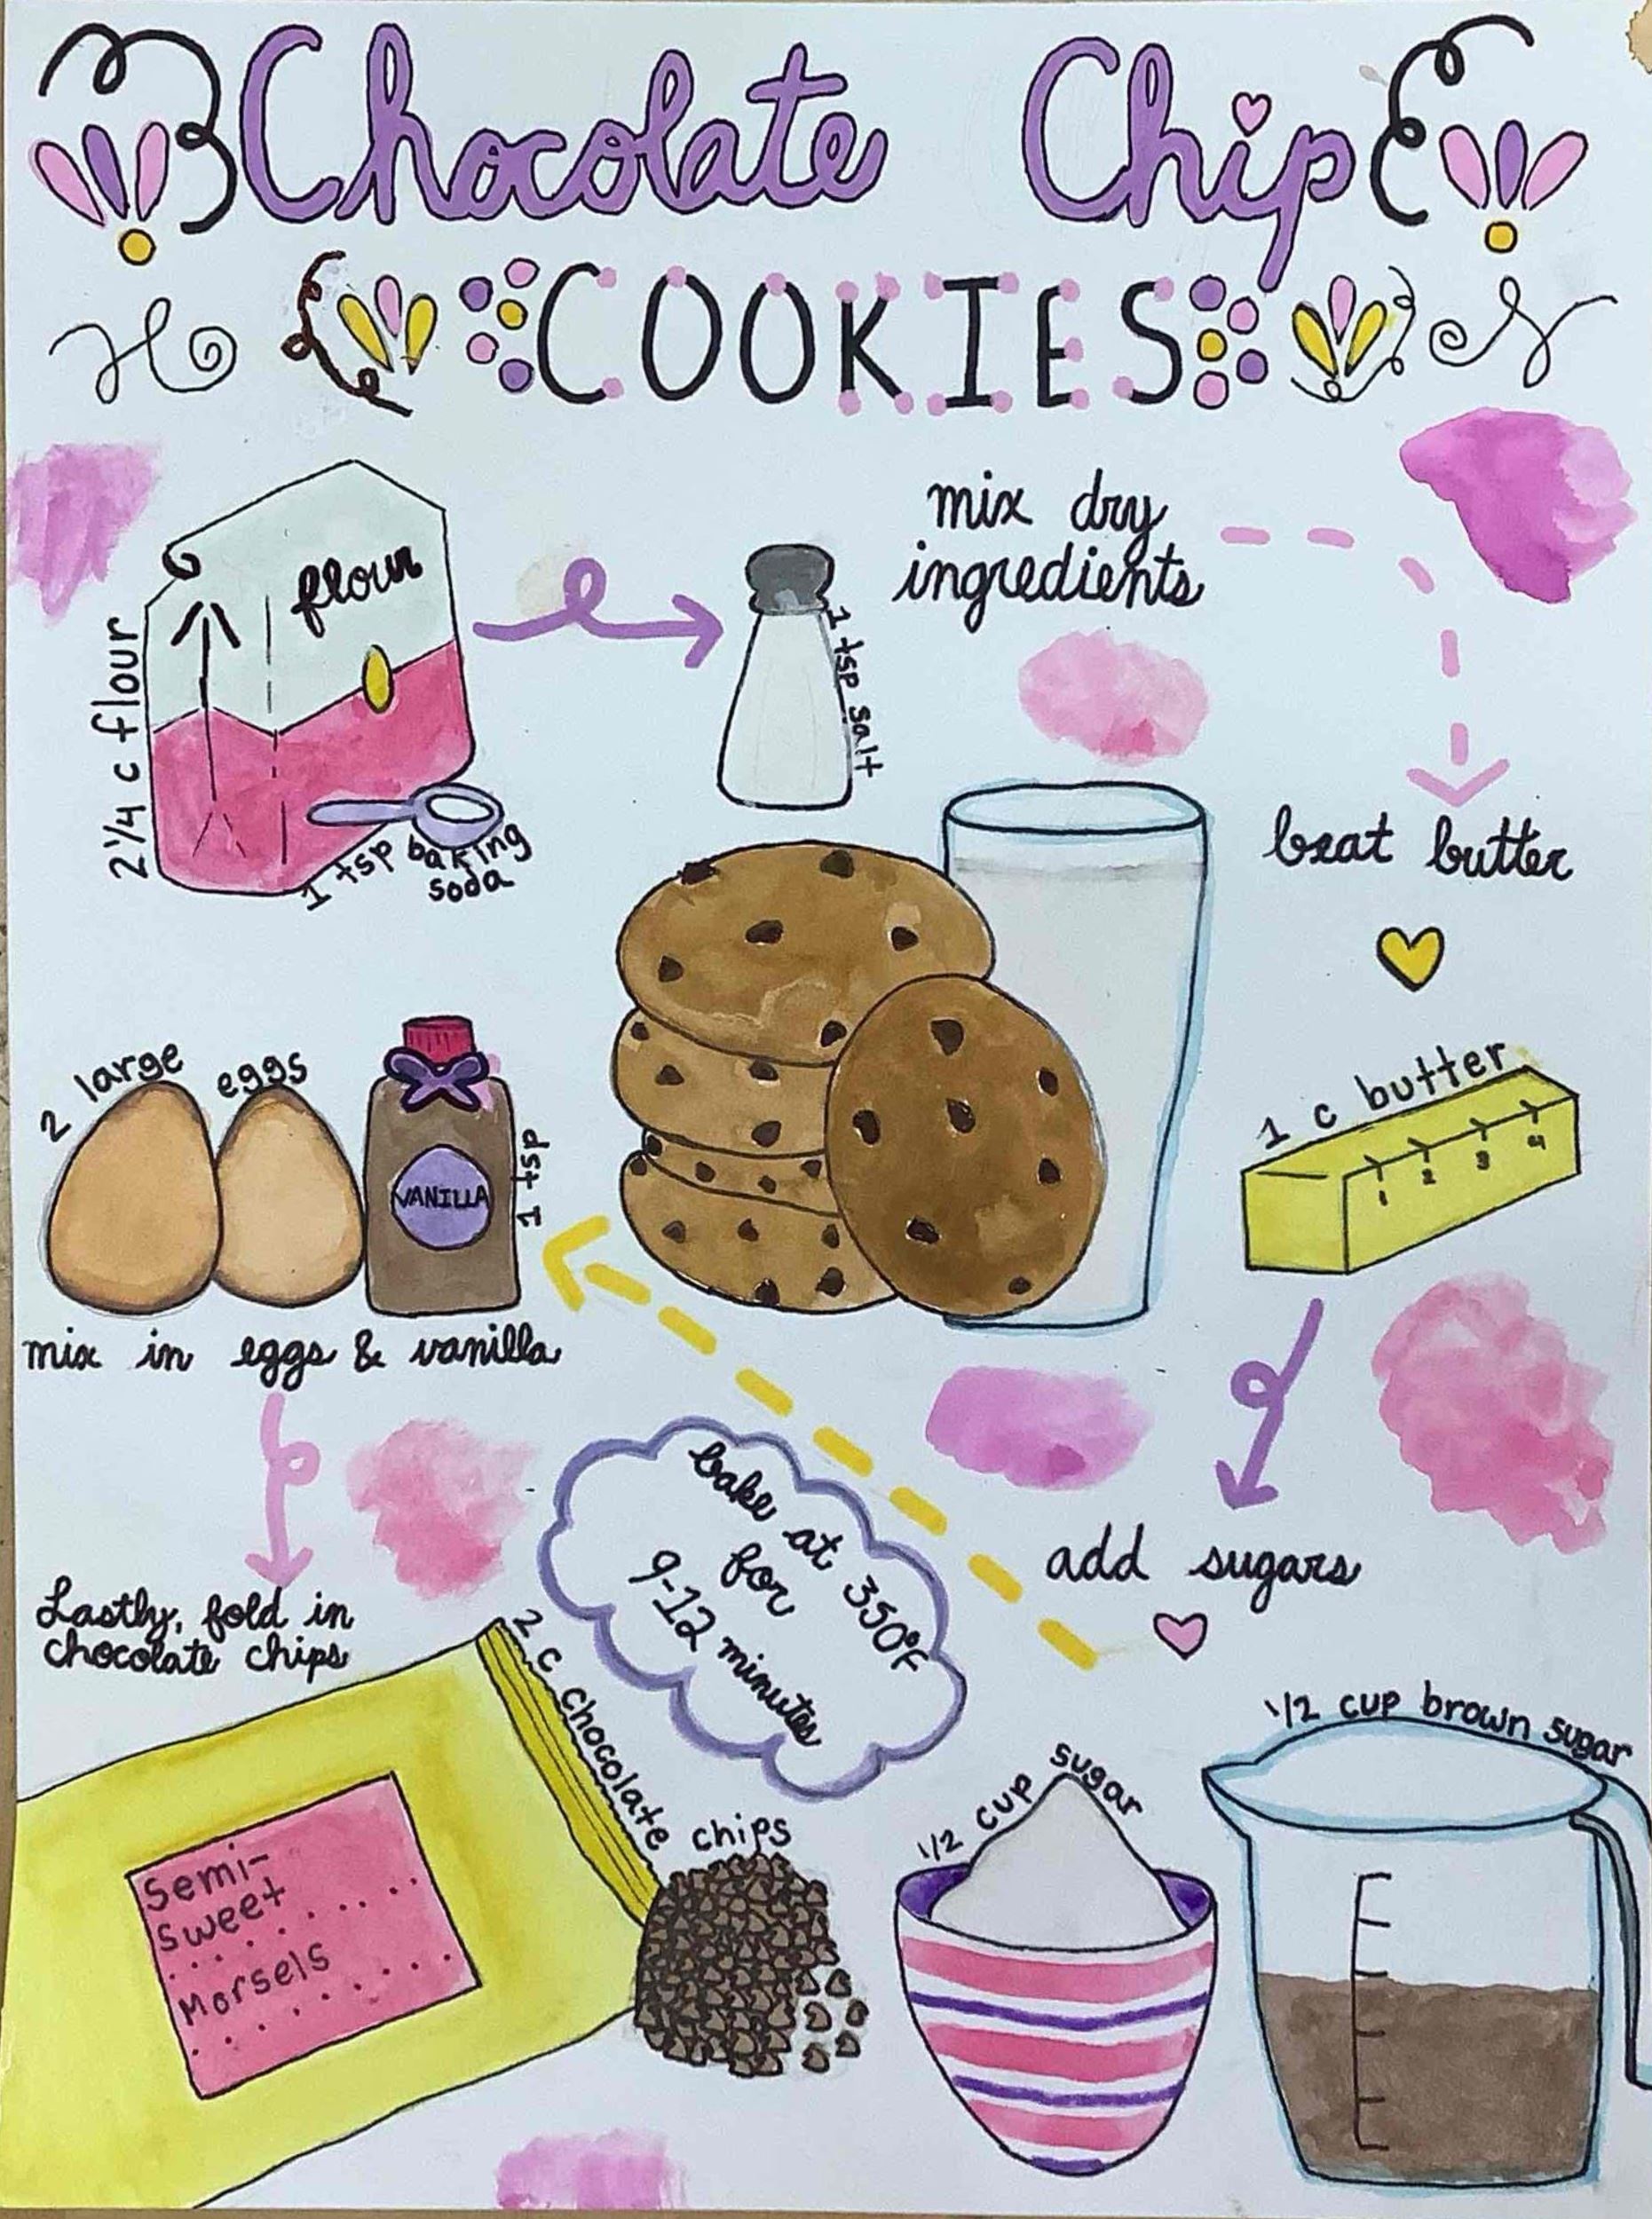 Chocolate Chip
COOKIES
flour
2 1/4 c flour
1 tsp baking
soda
1 tsp salt
mix dry
ingredients
beat butter
1 c butter
1 2 3 4
add sugars
1/2 cup sugar
1/2 cup brown sugar
2 large eggs
VANILLA
1 tsp
mix in eggs & vanilla
Lastly, fold in
chocolate chips
2 c chocolate chips
Semi-
Sweet
Morsels
bake at 350°F
for
9-12 minutes